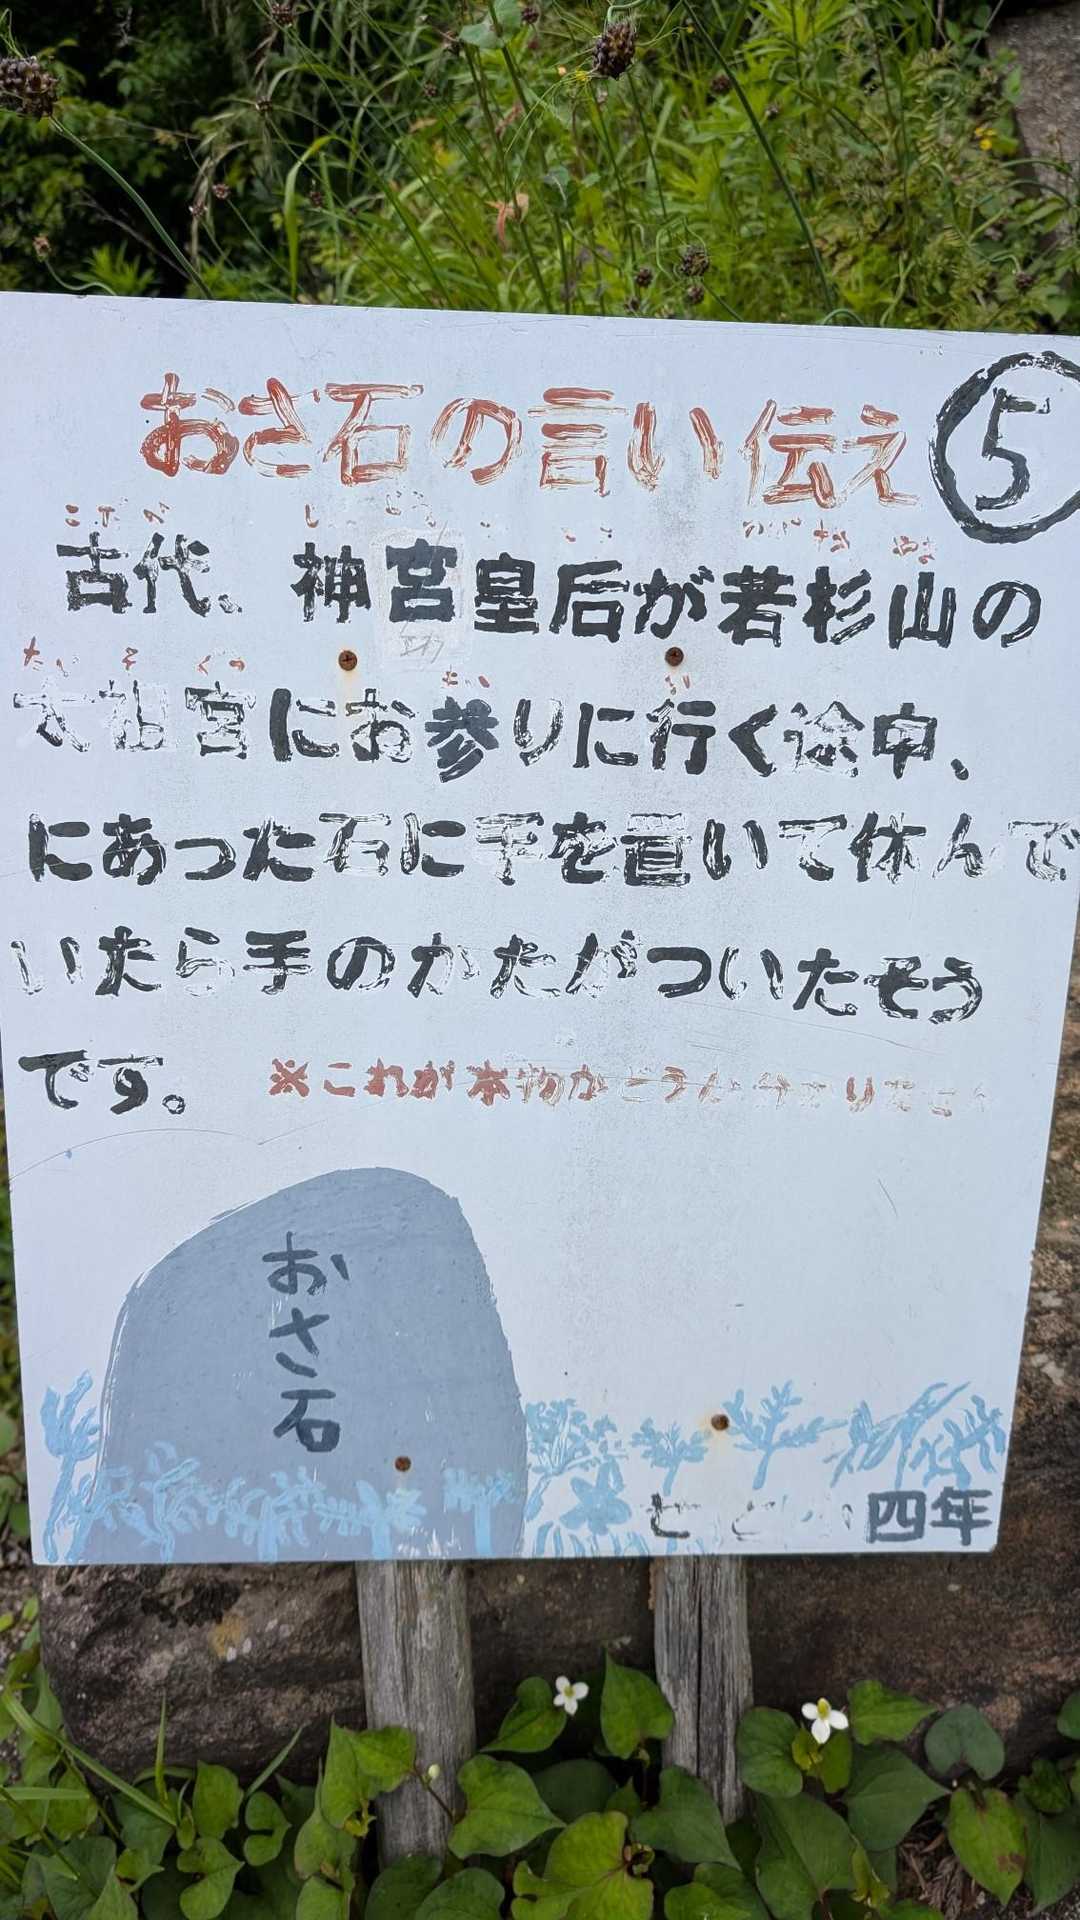 おさ石の言い伝え ⑤
古代、神宮皇后が若杉山の
太祖宮にお参りに行く途中、
にあった石に手を置いて休んで
いたら手のかたがついたそう
です。 ※これが本物かどうか分かりません
おさ石
四年